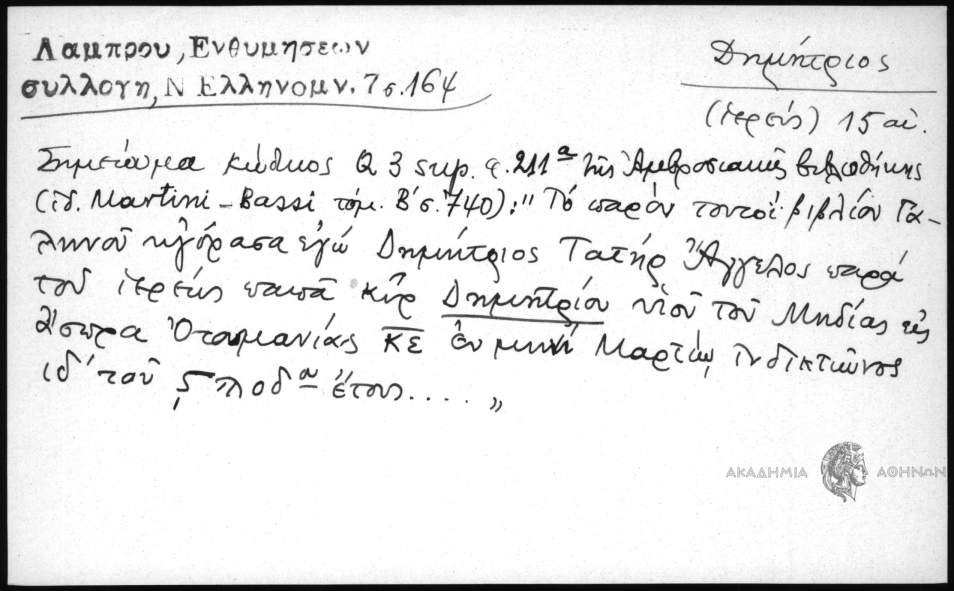 Λαμπρου, Ενθυμησεων
συλλογη, Ν Ελληνομν. 7 σ. 164
Δημήτριος
(ἱερεύς) 15 αἰ.
Σημείωμα κώδικος Q 3 sup. φ. 211α τῆς Ἀμβροσιανῆς βιβλιοθήκης
(ἰδ. Martini - Bassi τόμ. Β' σ. 740): "Τό παρόν τουτοί βιβλίον Γα-
ληνοῦ ἠγόρασα ἐγώ Δημήτριος Τατήρ Ἄγγελος παρά
τοῦ ἱερεύς παπᾶ κῦρ Δημητρίου υἱοῦ τοῦ Μηδίας εἰς
ἄσπρα Ὀτομανιάς ΚΕ ἐν μηνί Μαρτίῳ ἰνδικτιῶνος
ιδ' τοῦ ͵ςπλοδω ἔτους.... "
ΑΚΑΔΗΜΙΑ ΑΘΗΝΩΝ